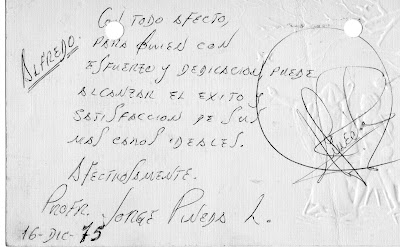 ALFREDO.
CON TODO AFECTO,
PARA QUIEN CON
ESFUERZO y DEDICACION, PUEDE
ALCANZAR EL EXITO y
SATISFACCION DE SUS
MAS CAROS IDEALES.
AFECTUOSAMENTE.
PROFR. JORGE PINEDA L.
16-DIC-75